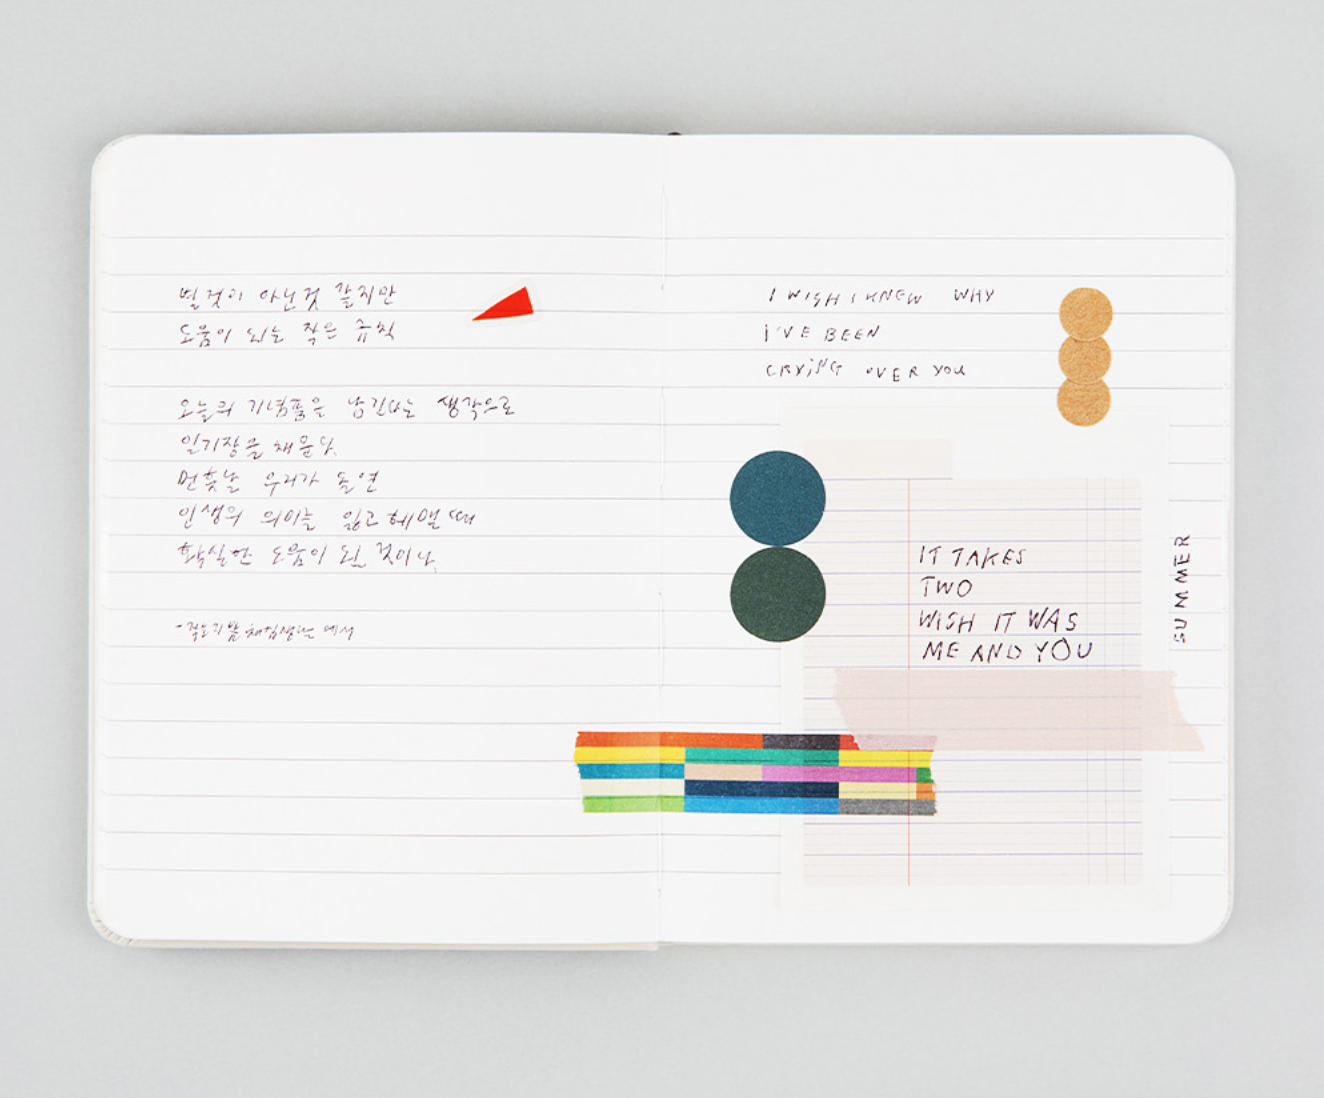 별것이 아닌것 같지만
도움이 되는 작은 규칙
오늘의 기념품을 남긴다는 생각으로
일기장을 채운다.
먼훗날 우리가 돌연
인생의 의미를 잃고 헤맬 때
확실한 도움이 될 것이다.
I WISH I KNEW WHY
I'VE BEEN
CRYING OVER YOU
IT TAKES
TWO
WISH IT WAS
ME AND YOU
SUMMER